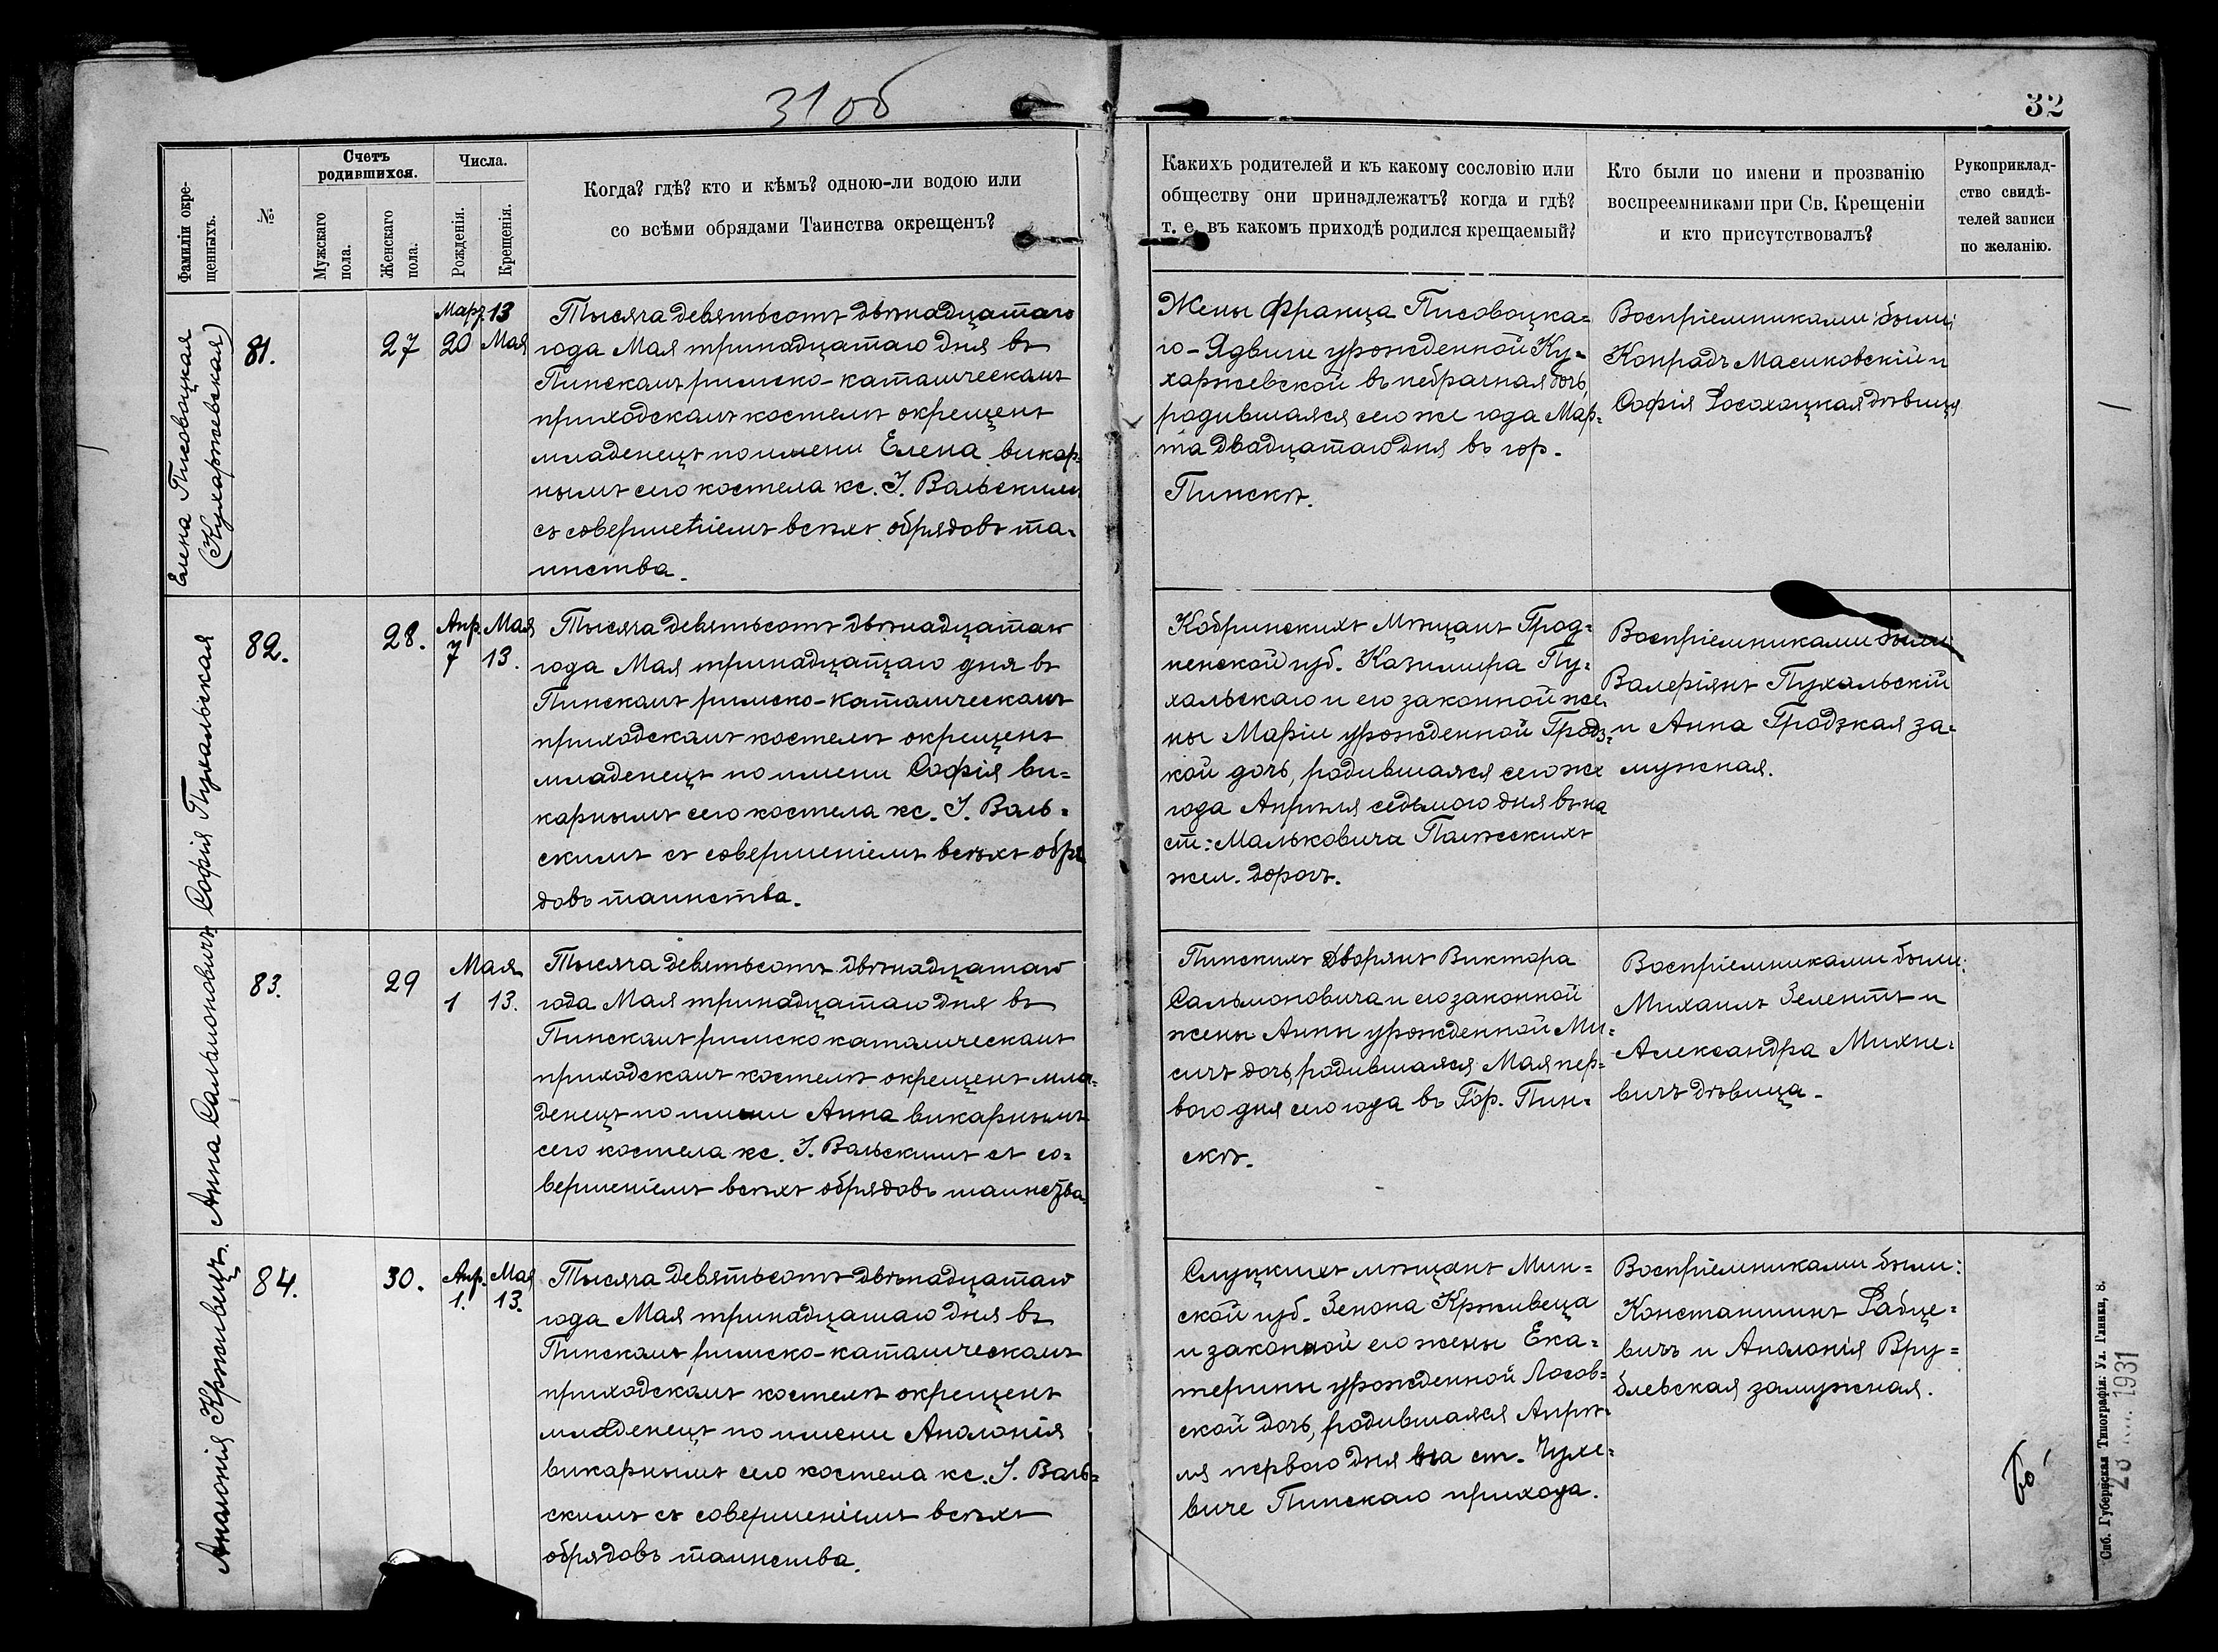 31 об
32
Фамиліи окре-
щенныхъ.
№
Счетъ
родившихся.
Мужскаго
пола.
Женскаго
пола.
Числа.
Рожденія.
Крещенія.
Когда? гдѣ? кто и кѣмъ? одною-ли водою или
со всѣми обрядами Таинства окрещенъ?
Какихъ родителей и къ какому сословію или
обществу они принадлежатъ? когда и гдѣ?
т. е. въ какомъ приходѣ родился крещаемый?
Кто были по имени и прозванію
воспреемниками при Св. Крещеніи
и кто присутствовалъ?
Рукоприклад-
ство свидѣ-
телей записи
по желанію.
Елена Писовоцкая
(Кухаржевская)
81.
27
Март. 13
20 Мая
Тысяча девятьсотъ двѣнадцатаго
года Мая тринадцатаго дня въ
Пинскомъ римско-католическомъ
приходскомъ костелѣ окрещенъ
младенецъ по имени Елена викар-
нымъ сего костела кс. І. Вальскимъ
съ совершеніемъ всѣхъ обрядовъ та-
инства.
Жены Франца Писовоцка-
го - Ядвиги урожденной Ку-
харжевской въ небрачная дочь,
родившаяся сего же года Мар-
та двадцатаго дня въ гор.
Пинскѣ.
Воспріемниками были:
Конрадъ Масиковскій и
Софія Росохоцкая дѣвица
Софія Пухальская
82.
28.
Апр. Мая
7 13.
Тысяча девятьсотъ двѣнадцатаго
года Мая тринадцатаго дня въ
Пинскомъ римско-католическомъ
приходскомъ костелѣ окрещенъ
младенецъ по имени Софія ви-
карнымъ сего костела кс. І. Валь-
скимъ съ совершеніемъ всѣхъ обря
довъ таинства.
Кобринскихъ Мѣщанъ Грод-
ненской губ. Казимира Пу-
хальскаго и его законной же-
ны Маріи урожденной Гродз-
кой дочь, родившаяся сего же
года Апрѣля седьмого дня въ на
ст: Мальковичи Полѣсскихъ
жел. дорогъ.
Воспріемниками были
Валеріянъ Пухальскій
и Анна Гродзкая за-
мужная.
Анна Сальмоновичъ
83.
29
Мая
1 13.
Тысяча девятьсотъ двѣнадцатаго
года Мая тринадцатаго дня въ
Пинскомъ римско католическомъ
приходскомъ костелѣ окрещенъ мла-
денецъ по имени Анна викарнымъ
сего костела кс. І. Вальскимъ съ со-
вершеніемъ всѣхъ обрядовъ таинства.
Пинскихъ дворянъ Виктора
Сальмоновича и его законной
жены Анны урожденной Ми-
сичъ дочь, родившаяся Мая пер-
вого дня сего года въ Гор. Пин-
скѣ.
Воспріемниками были:
Михаилъ Зелентъ и
Александра Михне-
вичъ дѣвица.
Аполонія Крживецъ.
84.
30.
Апр. Мая
1. 13.
Тысяча девятьсотъ двѣнадцатаго
года Мая тринадцатаго дня въ
Пинскомъ римско-католическомъ
приходскомъ костелѣ окрещенъ
младенецъ по имени Аполонія
викарнымъ сего костела кс. І. Валь-
скимъ съ совершеніемъ всѣхъ
обрядовъ таинства.
Слуцкихъ мѣщанъ Мин-
ской губ. Зенона Крживеца
и законной его жены Ека-
терины урожденной Лосов-
ской дочь, родившаяся Апрѣ-
ля перваго дня на ст. Чухе-
виче Пинскаго прихода.
Воспріемниками были:
Константинъ Рабце-
вичъ и Аполонія Вру-
блевская замужная.
Спб. Губернская Типографія. Ул. Глинки, 8.
1931